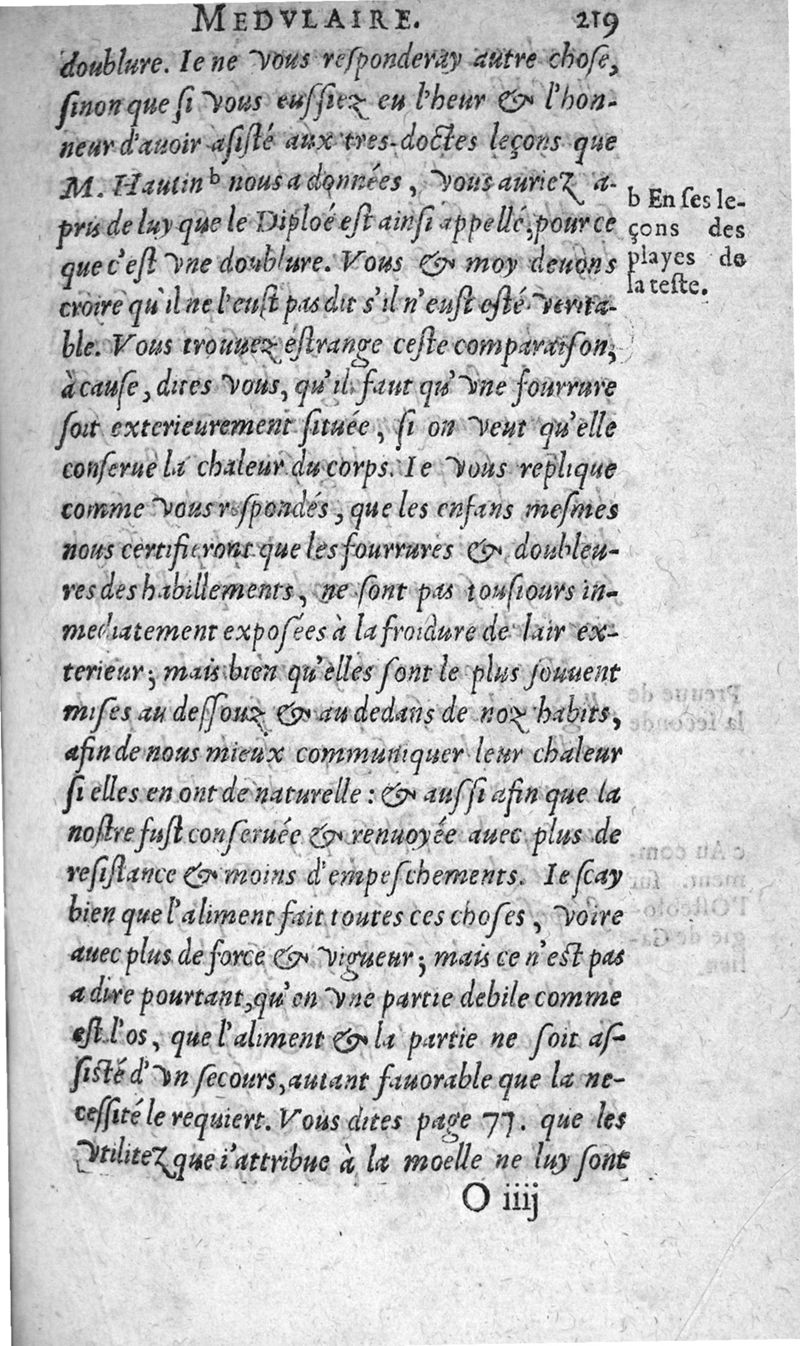 MEDVLAIRE. 219
doublure. Ie ne vous responderay autre chose,
sinon que si vous eussiez eu l'heur & l'hon-
neur d'auoir asisté aux tres-doctes leçons que
M. Hautin b nous a données, vous auriez a-
pris de luy que le Diploé est ainsi appellé, pource
que c'est vne doublure. Vous & moy deuons
croire qu'il ne l'eust pas dit s'il n'eust esté verita-
ble. Vous trouuez estrange ceste comparaison,
à cause, dites vous, qu'il faut qu'vne fourrure
soit exterieurement située, si on veut qu'elle
conserue la chaleur du corps. Ie vous replique
comme vous respondés, que les enfans mesmes
nous certifieront que les fourrures & doubleu-
res des habillements, ne sont pas tousiours in-
mediatement exposées à la froidure de lair ex-
terieur; mais bien qu'elles sont le plus souuent
mises au dessouz & au dedans de noz habits,
afin de nous mieux communiquer leur chaleur
si elles en ont de naturelle: & aussi afin que la
nostre fust conseruée & renuoyée auec plus de
resistance & moins d'empeschements. Ie scay
bien que l'aliment fait toutes ces choses, voire
auec plus de force & vigueur; mais ce n'est pas
a dire pourtant, qu'en vne partie debile comme
est l'os, que l'aliment & la partie ne soit as-
sisté d'vn secours, autant fauorable que la ne-
cessité le requiert. Vous dites page 77. que les
vtilitez que i'attribue à la moelle ne luy sont
O iiij
b En ses le-
çons des
playes de
la teste.